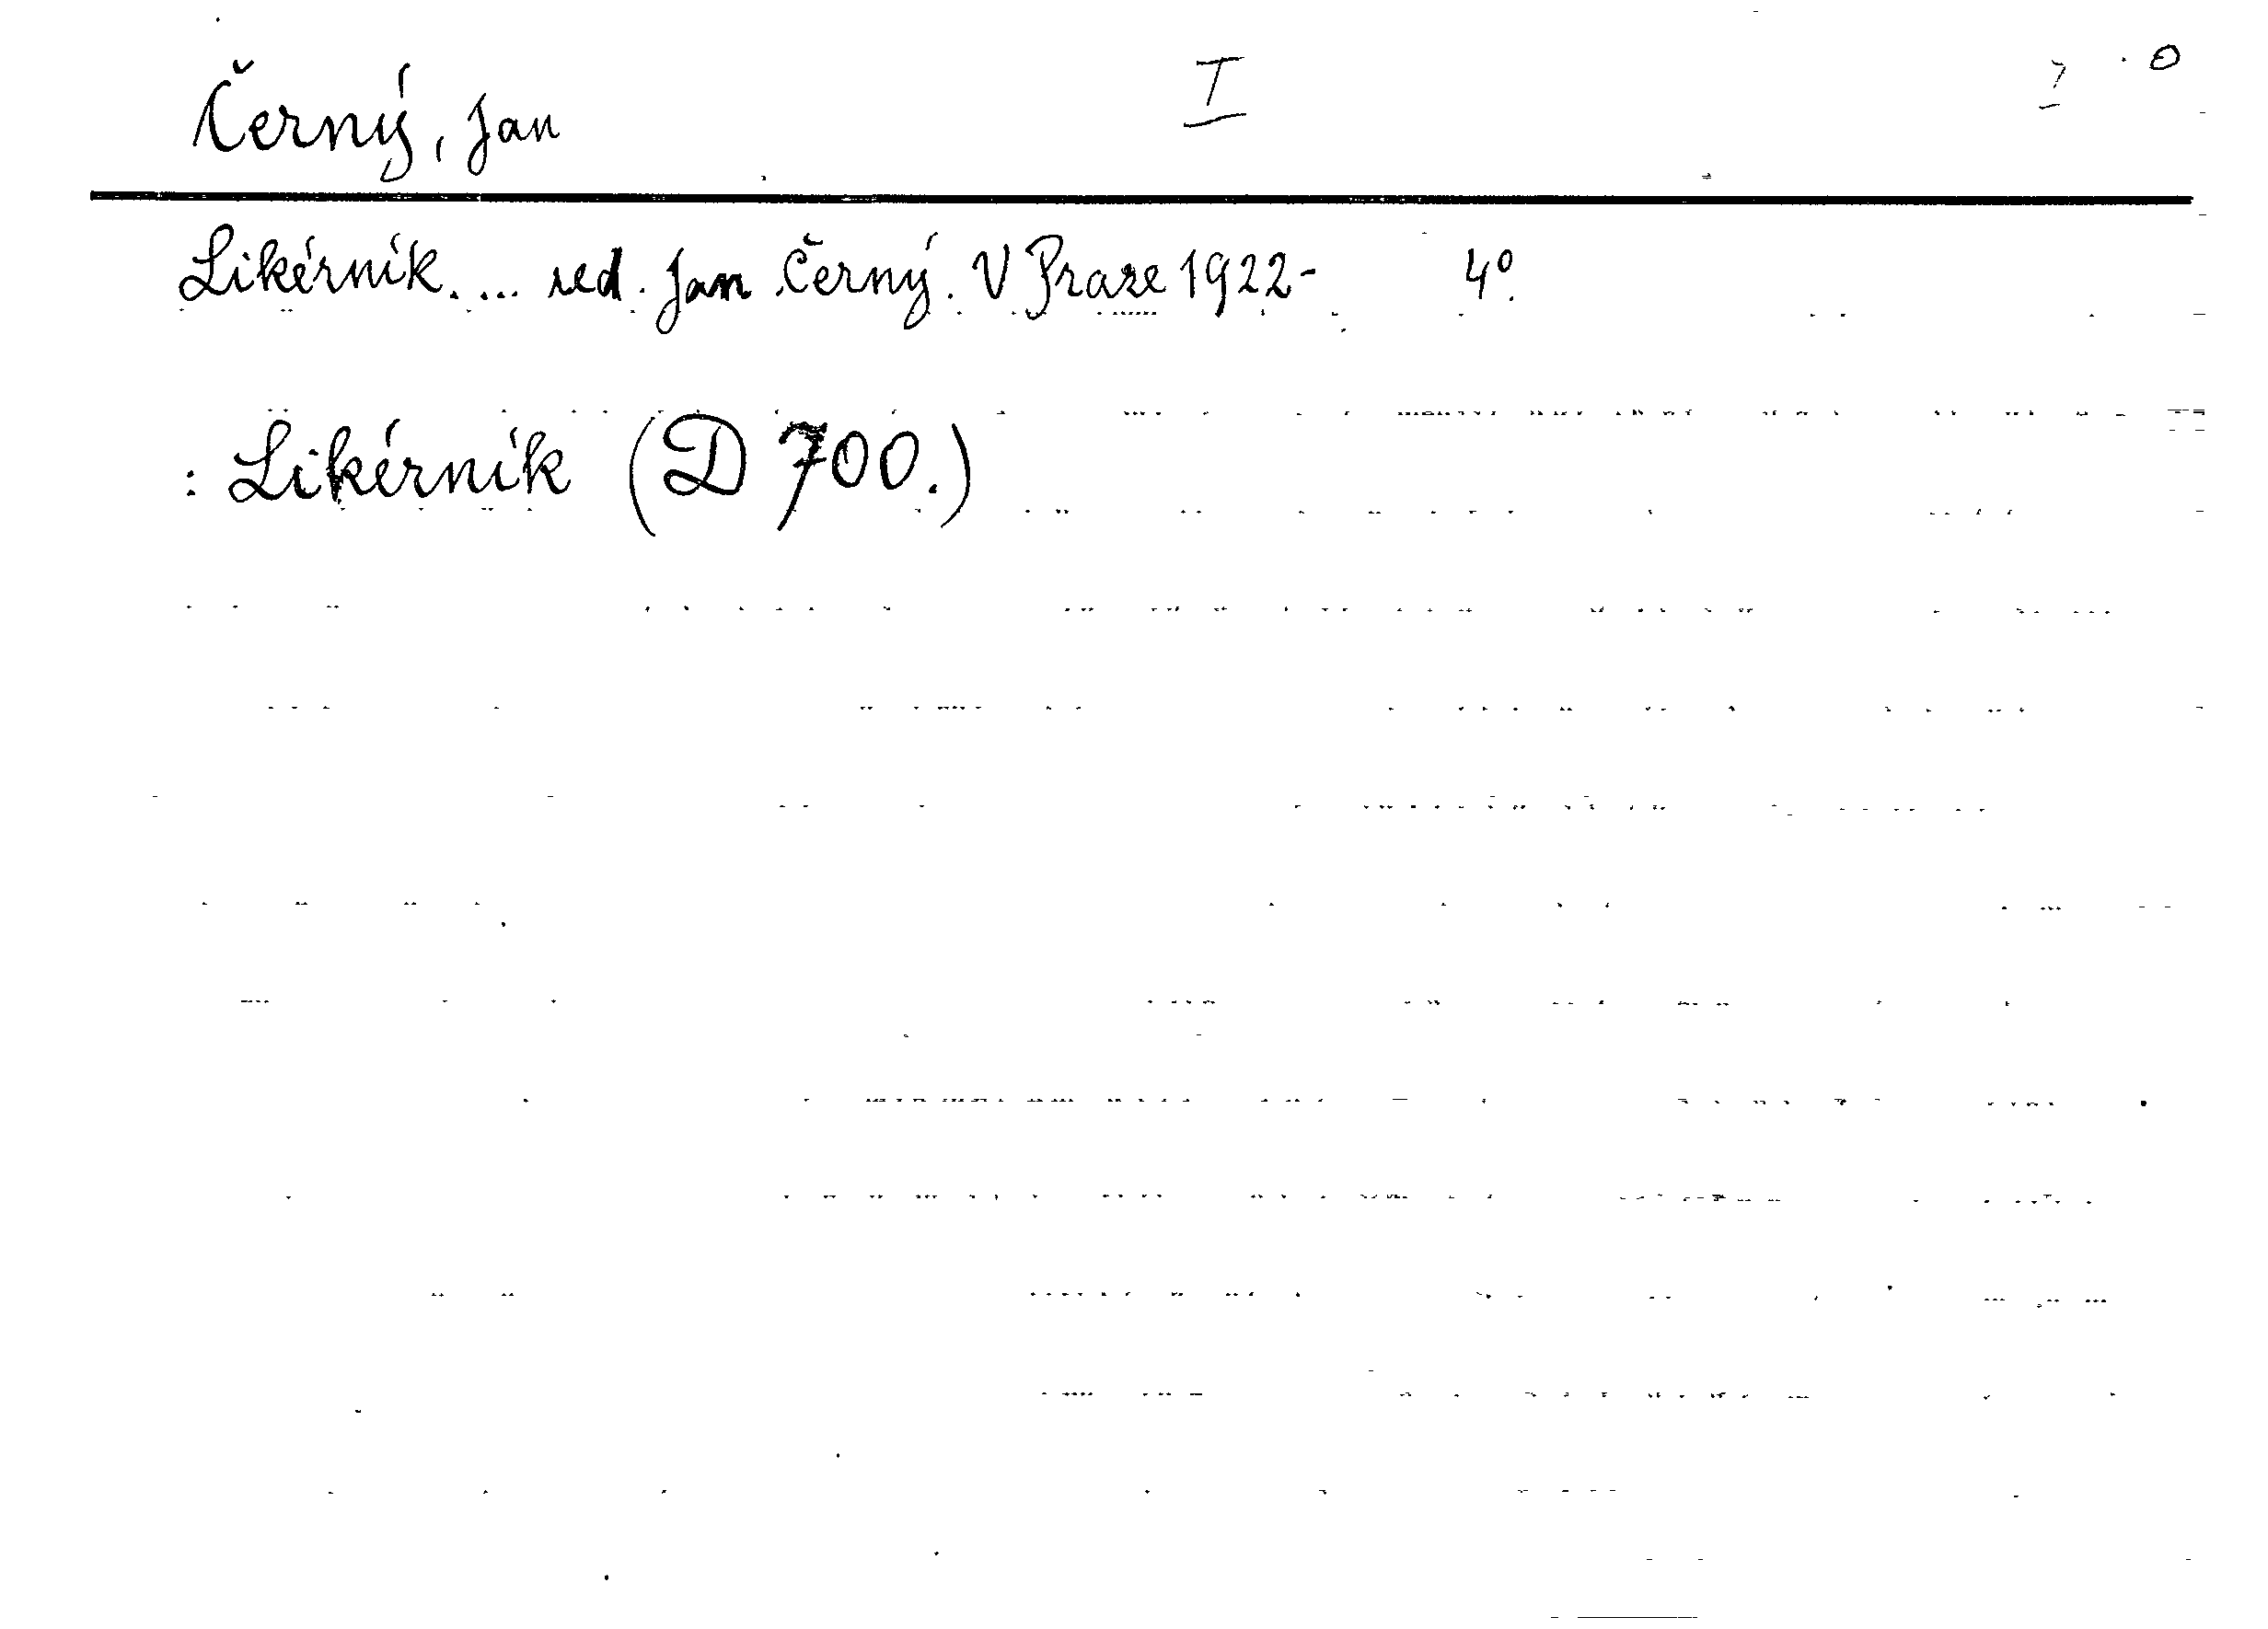 Černý, Jan I
Likérník.... red. Jan Černý. V Praze 1922- 4º.
: Likérník (D 700.)